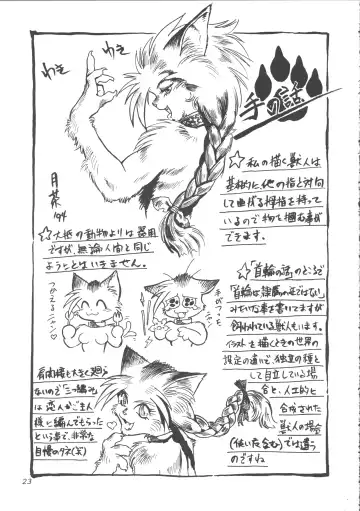 わき
わき
手の話
月葉
'94
☆私の描く獣人は
基本的に他の指と対向
して曲がる拇指を持って
いるので物を掴む事が
できます。
☆大抵の動物よりは器用
ですが、無論人間と同じ
ようにとはいきません。
つかえるニャン♡
☆「首輪の話」のところで
「首輪は隷属の証ではない」
みたいな事を書いてますが
飼われている獣人もいます。
イラストを描くときの世界の
設定の違いで、独立の種と
して自立している場
合と、人工的に
合成された
獣人の場合
では違う
のですね
肩関節も大きく廻ら
ないので三つ編み
は恋人かご主人
様に編んでもらった
という事で、非常な
自慢のタネ(笑)
23